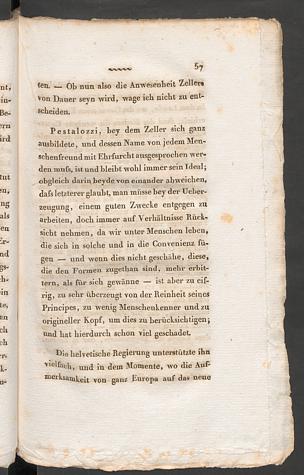 57
ten. — Ob nun also die Anwesenheit Zellers
von Dauer seyn wird, wage ich nicht zu ent-
scheiden.
Pestalozzi, bey dem Zeller sich ganz
ausbildete, und dessen Name von jedem Men-
schenfreund mit Ehrfurcht ausgesprochen wer-
den muſs, ist und bleibt wohl immer sein Ideal;
obgleich darin beyde von einander abweichen,
daſs letzterer glaubt, man müsse bey der Ueber-
zeugung, einem guten Zwecke entgegen zu
arbeiten, doch immer auf Verhältnisse Rück-
sicht nehmen, da wir unter Menschen leben,
die sich in solche und in die Convenienz fü-
gen — und wenn dies nicht geschähe, diese,
die den Formen zugethan sind, mehr erbit-
tern, als für sich gewänne — ist aber zu eif-
rig, zu sehr überzeugt von der Reinheit seines
Principes, zu wenig Menschenkenner und zu
origineller Kopf, um dies zu berücksichtigen;
und hat hierdurch schon viel geschadet.
Die helvetische Regierung unterstützte ihn
vielfach, und in dem Momente, wo die Auf-
merksamkeit von ganz Europa auf das neue